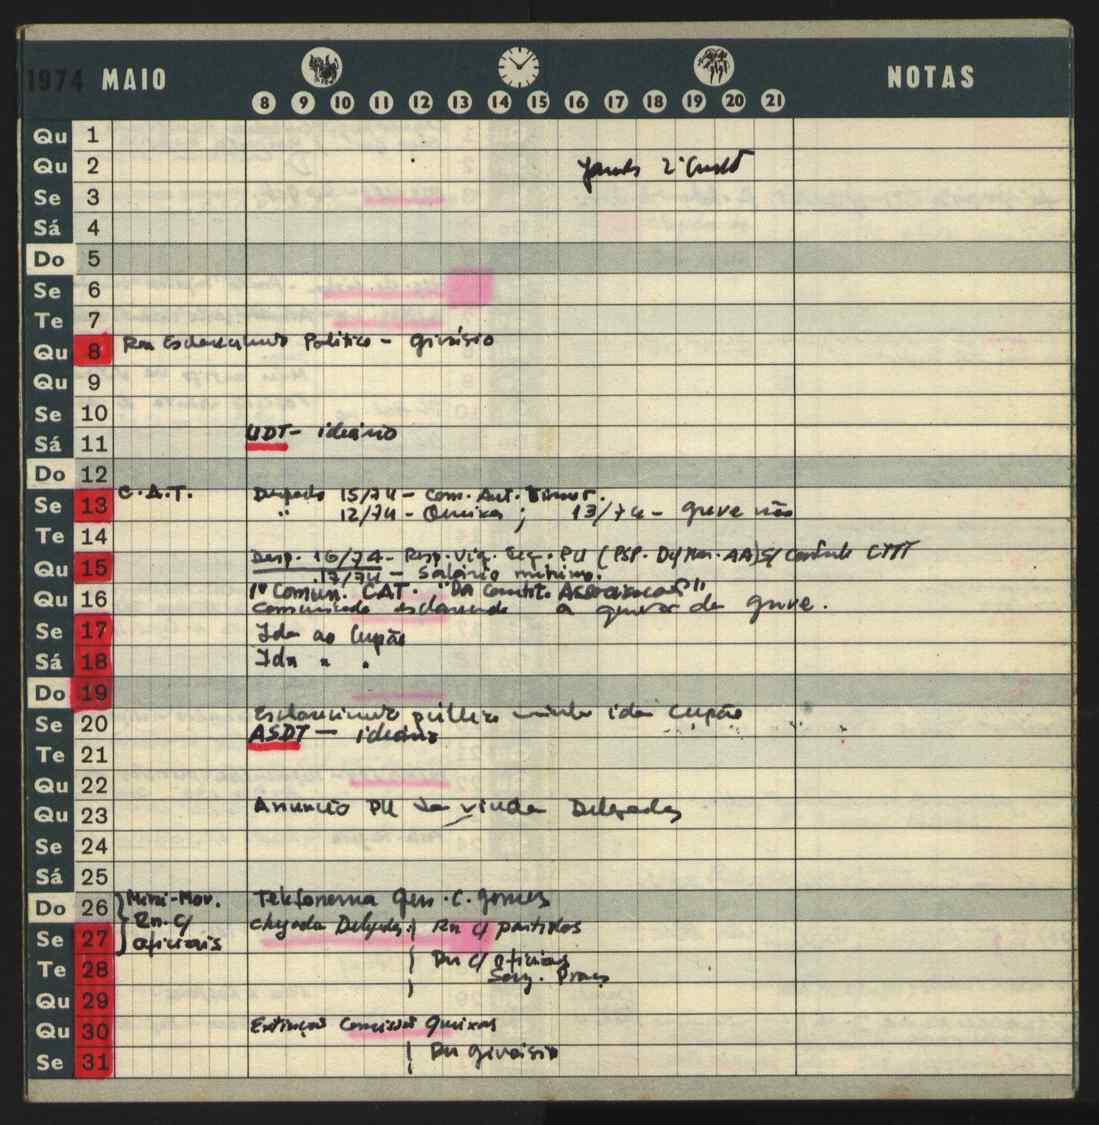 1974 MAIO NOTAS
8 9 10 11 12 13 14 15 16 17 18 19 20 21
Qu 1
Qu 2
Se 3
Sá 4
Do 5
Se 6
Te 7
Qu 8 Rn Esclarecimento Politico - ginásio
Qu 9
Se 10
Sá 11 UDT - ideário
Do 12
Se 13 C.A.T. Despacho 15/74 - Com. Aut. Timor.
" 12/74 - Queixas ; 13/74 - greve não
Te 14
Qu 15 Desp. 16/74 - Resp. Vig. Seg. PU (PSP.
17/74 - Salário mínimo.
Qu 16 1º Comun. C.A.T. "Da Constit. Associações"
Comunicado esclarecendo a quem da greve.
Se 17 Ida ao Cupão
Sá 18 Ida " "
Do 19
Se 20 Esclarecimento público minha ida Cupão
ASDT - ideário
Te 21
Qu 22
Qu 23 Anuncio PU da vinda Delgados
Se 24
Sá 25
Do 26 Mini-Mov. Telefonema Gen. C. Gomes
Rn. c/
oficiais
Se 27 Chegada Delgados. Rn c/ partidos
Te 28 Rn c/ oficiais
Sarg. Praças
Qu 29
Qu 30 Extinção Comissão Queixas
Se 31 Rn ginásio